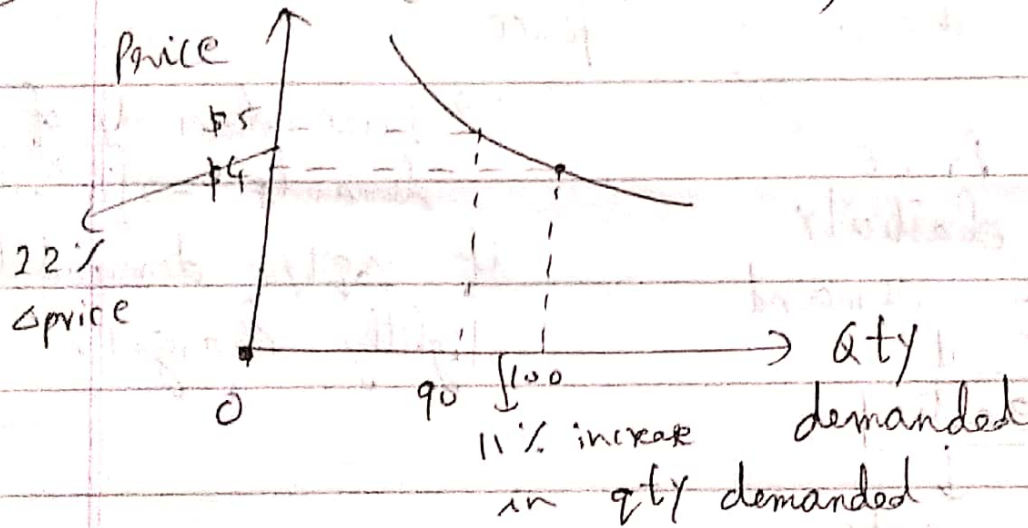 Price
$5
$4
22%
Δprice
0
90
100
Qty
demanded
11% increase
in qty demanded